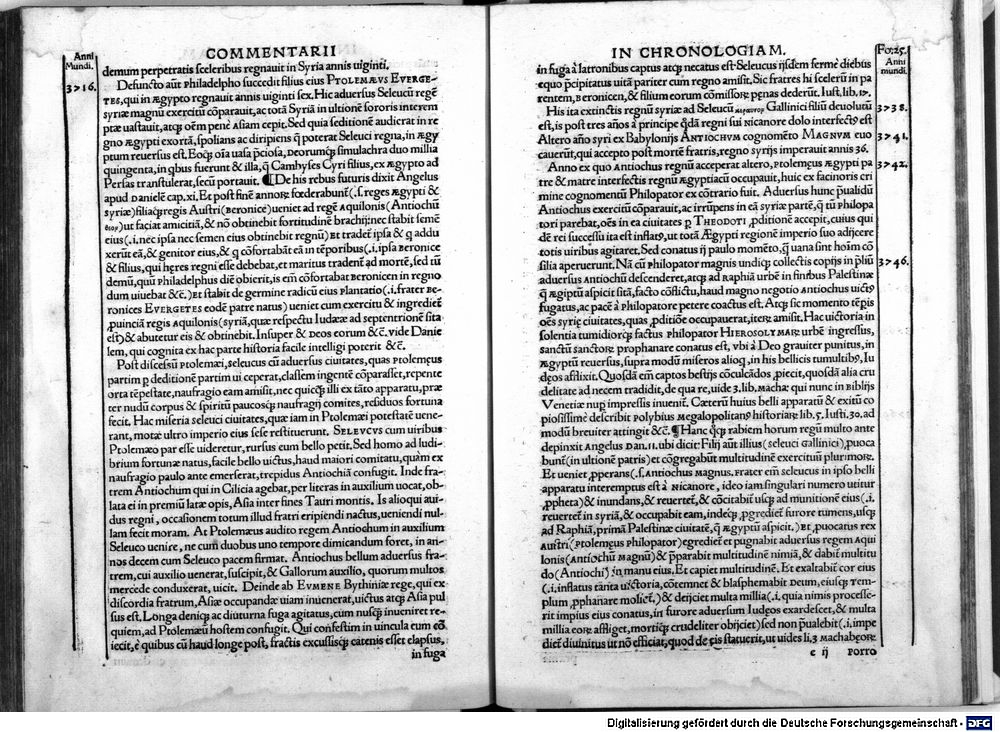 COMMENTARII
Anni
Mundi.
demum perpetratis sceleribus regnauit in Syria annis uiginti.
3716.
Defuncto aūt Philadelpho succedit filius eius PTOLEMÆVS EVERGE-
TES, qui in ægypto regnauit annis uiginti sex. Hic aduersus Seleucū regē
syriæ magnū exercitū cōparauit, ac totā Syriā in ultionē sororis interem
ptæ uastauit, atq; oēm penè Asiam cepit. Sed quia seditionē audicrat in re
gno ægypti exortā, spolians ac diripiens q̄ poterat Seleuci regna, in ægy
ptum reuersus est. Eoq; oīa uasa p̄ciosa, Deorumq; simulachra duo millia
quingenta, in qbus fuerunt & illa, q̄ Cambyses Cyri filius, ex ægypto ad
Persas transtulerat, secū portauit. ¶ De his rebus futuris dixit Angelus
apud Danielē cap. xi. Et post finē annoꝝ fœderabunt̄ (.s. reges ægypti &
syriæ) filiaq; regis Austri (Beronice) ueniet ad regē Aquilonis (Antiochū
) ut faciat amicitiā, & nō obtinebit fortitudinē brachij, nec stabit semē
eius (.i. nec ipsa nec semen eius obtinebit regnū) Et tradet̄ ipsa & q addu
xerūt eā, & genitor eius, & q cōfortabāt eā in tēporibus (.i. ipsa Beronice
& filius, qui hęres regni esse debebat, et maritus tradent̄ ad mortē, sed tū
demū, quū Philadelphus diē obierit, is em̄ cōfortabat Beronicen in regno
dum uiuebat &c̄.) Et stabit de germine radicū eius plantatio (.i. frater Be-
ronices EVERGETES eodē patre natus) ueniet cum exercitu & ingrediet̄
ꝓuinciā regis Aquilonis (syriā, quæ respectu Iudææ ad septentrionē sita
est) & abutetur eis & obtinebit. Insuper & Deos eorum &c̄. vide Danie
lem, qui cognita ex hac parte historia facile intelligi poterit &c̄.
Post discessū Ptolemæi, seleucus cū aduersus ciuitates, quas Ptolemęus
partim p deditionē partim ui ceperat, classem ingentē cōparasset, repente
orta tēpestate, naufragio eam amisit, nec quicq̄; illi ex tāto apparatu, præ
ter nudū corpus & spiritū paucosq; naufragij comites, residuos fortuna
fecit. Hac miseria seleuci ciuitates, quæ iam in Ptolemæi potestatē uene-
rant, motæ ultro imperio eius sese restituerunt. SELEVCVS cum uiribus
Ptolemæo par esse uideretur, rursus eum bello petit. Sed homo ad ludi-
brium fortunæ natus, facile bello uictus, haud maiori comitatu, quàm ex
naufragio paulo ante emerserat, trepidus Antiochiā confugit. Inde fra-
trem Antiochum qui in Cilicia agebat, per literas in auxilium uocat, ob-
lata ei in premiū latæ opis, Asia inter fines Tauri montis. Is alioqui aui-
dus regni, occasionem totum illud fratri eripiendi nactus, ueniendi nul-
lam fecit moram. At Ptolemæus audito regem Antiochum in auxilium
Seleuco uenire, ne cum duobus uno tempore dimicandum foret, in an-
nos decem cum Seleuco pacem firmat. Antiochus bellum aduersus fra-
trem, cui auxilio uenerat, suscipit, & Gallorum auxilio, quorum multos
mercede conduxerat, uicit. Deinde ab EVMENE Bythiniæ rege, qui ex
discordia fratrum, Asiæ occupandæ uiam inuenerat, uictus atq; Asia pul
sus est. Longa deniq; ac diuturna fuga agitatus, cum nusq̄; inueniret re-
quiem, ad Ptolemæū hostem confugit. Qui confestim in uincula eum cō
iecit, è quibus cū haud longe post, fractis excussisq; catenis esset elapsus,
in fuga
IN CHRONOLOGIAM.
Fo: 25.
Anni
mundi.
in fuga à latronibus captus atq; necatus est. Seleucus ijsdem fermè diebus
equo p̄cipitatus uitā pariter cum regno amisit. Sic fratres hi scelerū in pa
rentem, Beronicen, & filium eorum cōmissoꝝ pęnas dederūt. Iust. lib. 17.
3738.
His ita extinctis regnū syriæ ad Seleucū Gallinici filiū deuolutū
est, is post tres años à principe q̄dā regni sui Nicanore dolo interfect9 est
3741.
Altero año syri ex Babylonijs ANTIOCHVM cognomēto MAGNVM euo
cauerūt, qui accepto post mortē fratris, regno syrijs imperauit annis 36.
3742.
Anno ex quo Antiochus regnū acceperat altero, Ptolemęus ægypti pa
tre & matre interfectis regnū ægyptiacū occupauit, huic ex facinoris cri
mine cognomentū Philopator ex cōtrario fuit. Aduersus hunc p̄ualidū
Antiochus exercitū cōparauit, ac irrūpens in eā syriæ partē, q̄ tū Philopa
tori parebat, oēs in ea ciuitates p THEODOTI, ꝓditionē accepit, cuius qui
dē rei successū ita est inflat9, ut totā Ægypti regionē imperio suo adijcere
totis uiribus agitaret. Sed conatus ij paulo momēto, q̄ uana sint hoīm cō
3746.
silia aperuerunt. Nā cū Philopator magnis undiq; collectis copijs in p̄liū
aduersus Antiochū descenderet, atq; ad Raphiā urbē in finibus Palestinæ
q̄ ægiptū aspicit sitā, facto cōflictu, haud magno negotio Antiochus uict9
fugatus, ac pacē à Philopatore petere coactus est. Atq; sic momento tēpis
oēs syrię ciuitates, quas ꝓditiōe occupauerat, iteꝝ amisit. Hac uictoria in
solentia tumidiorq; factus Philopator HIEROSOLYMAꝝ urbē ingressus,
sanctū sanctoꝝ prophanare conatus est, vbi à Deo grauiter punitus, in
ægyptū reuersus, supra modū miseros alioq, in his bellicis tumultib9, Iu
dęos afflixit. Quosdā em̄ captos bestijs cōculcādos, ꝓiecit, quosdā alia cru
delitate ad necem tradidit, de qua re, uide 3. lib. Machæ qui nunc in Biblijs
Venetiæ nuꝑ impressis inuenit̄. Cæterū huius belli apparatū & exitū co
piosissimè describit Polybius Megalopolitan9 historiaꝝ lib. 5. Iusti. 30. ad
modū breuiter attingit &c̄. ¶ Hanc q̄q; rabiem horum regū multo ante
depinxit Angelus DAN. 11. ubi dicit: Filij aūt illius (seleuci gallinici), ꝓuoca
bunt̄ (in ultionē patris) et cōgregabūt multitudinē exercituū plurimoꝝ.
Et ueniet, ꝓperans (.s. Antiochus Magnus. Frater em̄ seleucus in ipso belli
apparatu interemptus est à Nicanore, ideo iam singulari numero utitur
ꝓpheta) & inundans, & reuertet̄, & cōcitabit̄ usq; ad munitionē eius (.i.
reuertet̄ in syriā, & occupabit eam, indeq;, ꝓgrediet̄ furore tumens, usq;
ad Raphiā, primā Palestinæ ciuitatē, q̄ ægyptū aspicit.) Et, ꝓuocatus rex
Austri (Ptolemęus Philopator) egrediet̄ et pugnabit aduersus regem Aqui
lonis (Antiochū Magnū) & p̄parabit multitudinē nimiā, & dabit̄ multitu
do (Antiochi) in manu eius. Et capiet multitudinē. Et exaltabit̄ cor eius
(.i. inflatus tanta uictoria, cōtemnet & blasphemabit Deum, eiusq; tem-
plum, ꝓphanare moliet̄,) & deijciet multa millia (.i. quia nimis processe-
rit impius eius conatus, in furore aduersum Iudęos exardescet, & multa
millia eoꝝ affliget, mortiq; crudeliter obijciet) sed non p̄ualebit (.i. impe
diet̄ diuinitus ut nō efficiat, quod de eis statuerit, ut uides li. 3 Machabęoꝝ.
e ij
Porro
Digitalisierung gefördert durch die Deutsche Forschungsgemeinschaft - DFG